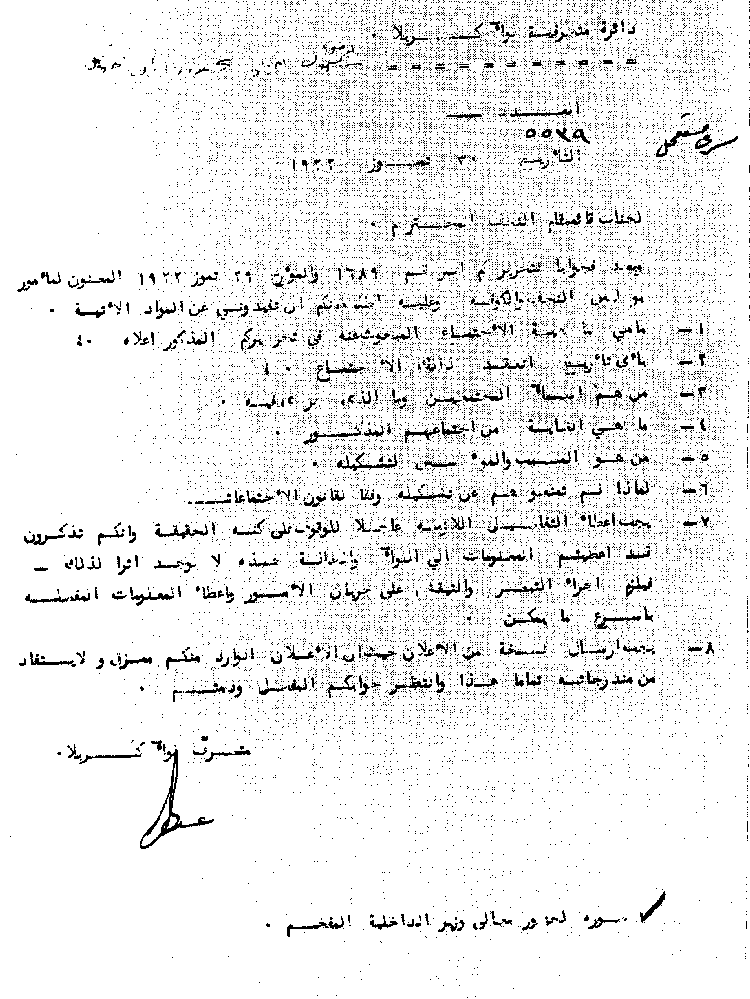 دائرة متصرفية لواء كربلا .
العدد
٥٥٣٩
سري مستعجل
التأريخ ٣٠ تموز ١٩٢٢
لجناب قائمقام النجف المحترم .
وبعد فجوابا لتحريركم المرقم ١٦٨٩ والمؤرخ ٢٩ تموز ١٩٢٢ المعنون لمأمور
بوليس النجف والكوفة وعليه ان تفيدونني عن المواد الآتية .
١ــ ماهي ماهية الاجتماع المبحوث عنه في تحريركم المذكور اعلاه .
٢ــ بأي تأريخ انعقد ذلك الاجتماع .
٣ــ من هم اسماء المجتمعين وما الذي .
٤ــ ما هي الغاية من اجتماعهم المذكور .
٥ــ من هو المسبب والمؤسس لتشكيله .
٦ــ لماذا لم تمنعوهم عن تشكيله وفقا لقانون الاجتماعات .
٧ــ يجب اعطاء التفاصيل اللازمة عاجلا للوقوف على كنه الحقيقة وانكم تذكرون
قد اعطيتم المعلومات الى اللواء والحالة هذه لا يوجد اثرا لذلك ــ
فيلزم اجراء التبصر والتيقظ على جريان الأمور واعطاء المعلومات المفصلة
باسرع ما يمكن .
٨ــ يجب ارسال نسخة من الاعلان حيث ان الأعلان الوارد منكم ممزق و لايستفاد
من مندرجاته تماما هذا وانتظر جوابكم المفصل ودمتم .
متصرف لواء كربلا .
صورة لحضور معالي وزير الداخلية المفخم .